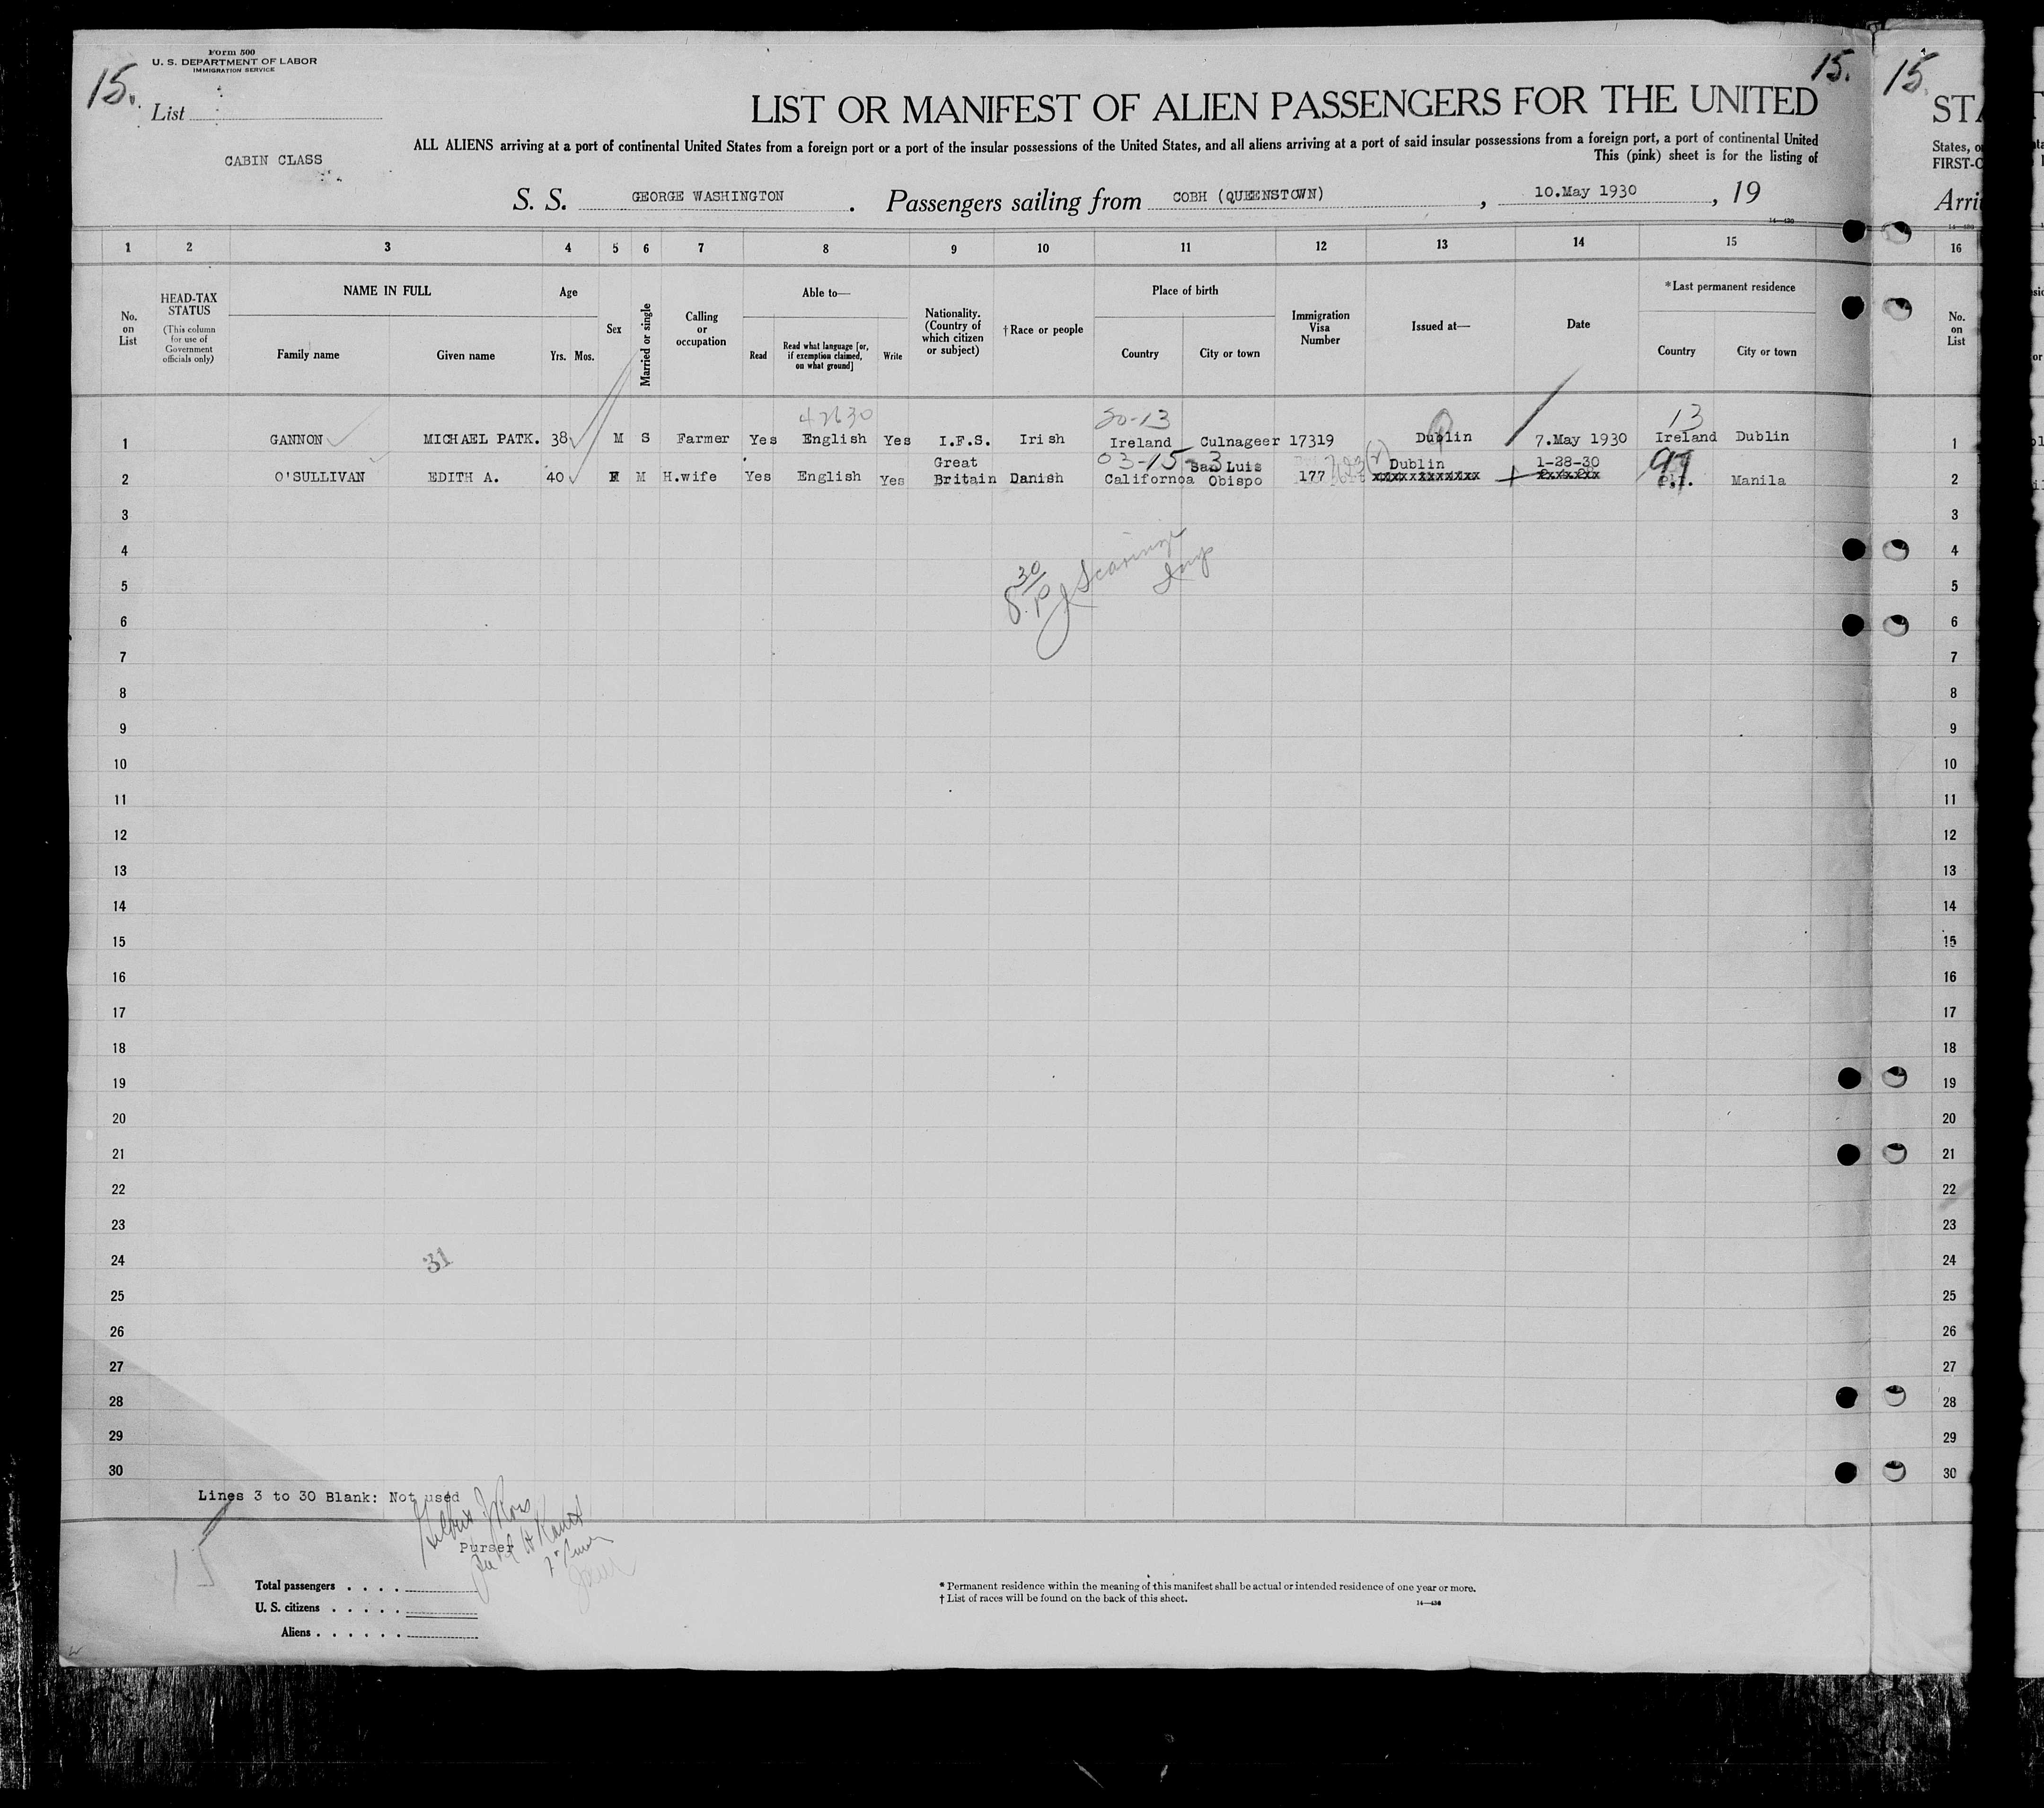 Form 500
U. S. DEPARTMENT OF LABOR
IMMIGRATION SERVICE
15.
15.
15.
List
LIST OR MANIFEST OF ALIEN PASSENGERS FOR THE UNITED
STA
CABIN CLASS
ALL ALIENS arriving at a port of continental United States from a foreign port or a port of the insular possessions of the United States, and all aliens arriving at a port of said insular possessions from a foreign port, a port of continental United
States, o
This (pink) sheet is for the listing of
FIRST-C
S. S. GEORGE WASHINGTON . Passengers sailing from COBH (QUEENSTOWN) , 10.May 1930 , 19
Arri
14—430
1 2 3 4 5 6 7 8 9 10 11 12 13 14 15 16
No. on List
HEAD-TAX STATUS
(This column for use of Government officials only)
NAME IN FULL
Family name
Given name
Age
Yrs. Mos.
Sex
Married or single
Calling or occupation
Able to—
Read
Read what language [or, if exemption claimed, on what ground]
Write
Nationality. (Country of which citizen or subject)
† Race or people
Place of birth
Country
City or town
Immigration Visa Number
Issued at—
Date
* Last permanent residence
Country
City or town
No. on List
42630 30-13 13
1 GANNON MICHAEL PATK. 38 M S Farmer Yes English Yes I.F.S. Irish Ireland Culnageer 17319 Dublin 7.May 1930 Ireland Dublin 1
03-15-3 97
2 O'SULLIVAN EDITH A. 40 F M H.wife Yes English Yes Great Britain Danish Californoa San Luis Obispo 177 Dublin 1-28-30 P.I. Manila 2
3 3
4 4
5 5
8 30 P
6 6
7 7
8 8
9 9
10 10
11 11
12 12
13 13
14 14
15 15
16 16
17 17
18 18
19 19
20 20
21 21
22 22
23 23
24 31 24
25 25
26 26
27 27
28 28
29 29
30 30
Lines 3 to 30 Blank: Not used
Purser
15
Total passengers . . . .
U. S. citizens . . . . .
Aliens . . . . . .
* Permanent residence within the meaning of this manifest shall be actual or intended residence of one year or more.
† List of races will be found on the back of this sheet.
14—430